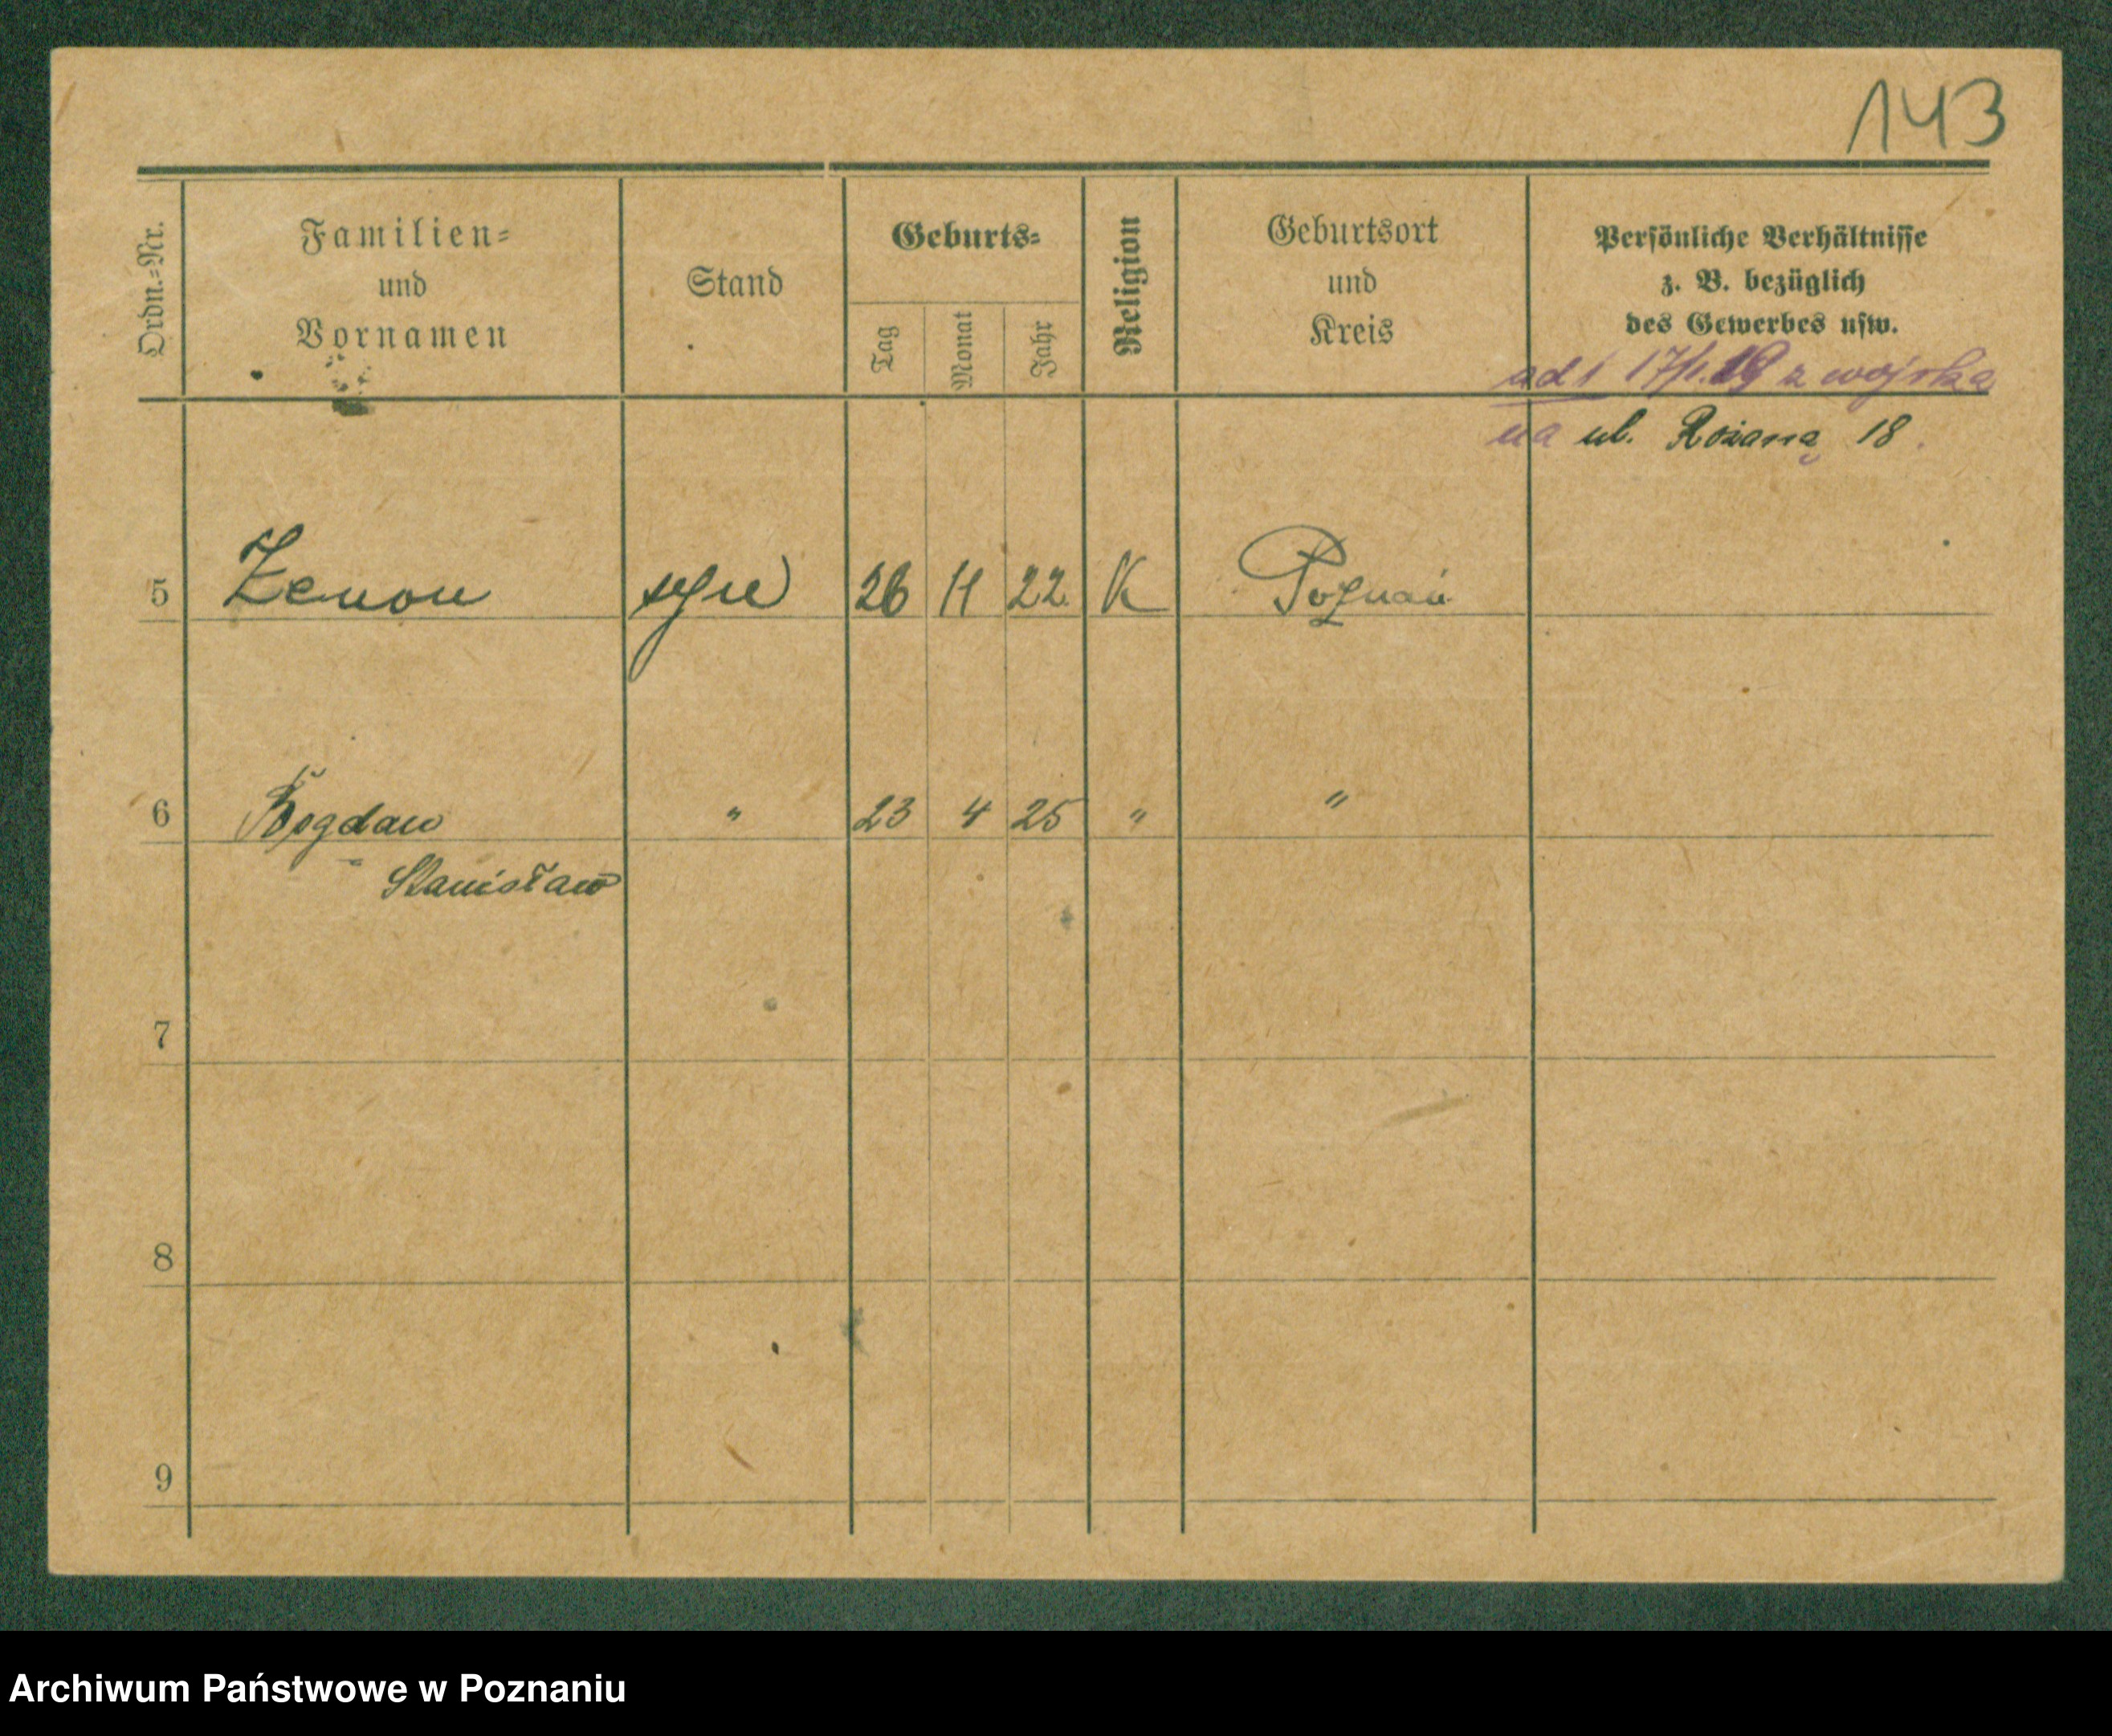 143
Ordn.-Nr.
Familien-
und
Vornamen
Stand
Geburts-
Tag
Monat
Jahr
Religion
Geburtsort
und
Kreis
Persönliche Verhältnisse
z. B. bezüglich
des Gewerbes usw.
ad 1 17/1.19 z wojska
na ul. Rożaną 18.
5 Zenon syn 26 11 22 K Poznań
6 Bogdan " 23 4 25 " "
Stanisław
7
8
9
Archiwum Państwowe w Poznaniu